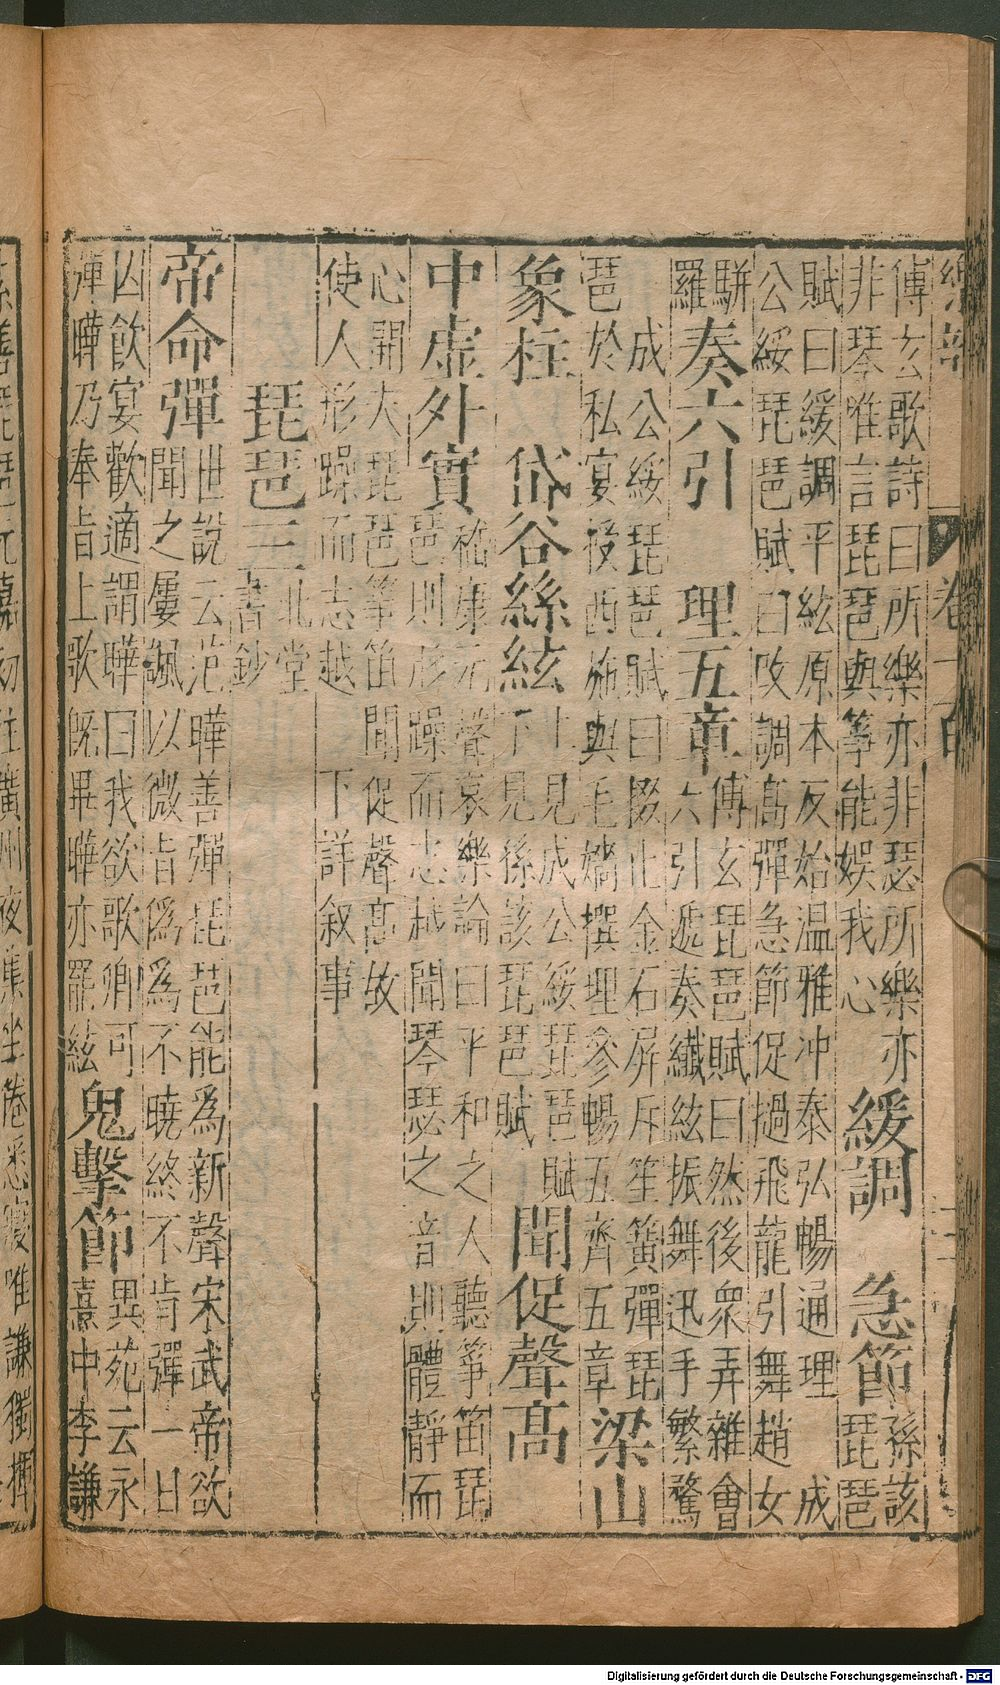 樂部 卷一百
傅玄歌詩曰所樂亦非瑟所樂亦
非琴唯言琵琶與箏能娛我心
緩調 急節
孫該
琵琶
賦曰緩調平絃原本反始温雅冲泰弘暢通理 成
公綏琵琶賦曰改調高彈急節促撾飛龍引舞趙女
駢
羅
奏六引 理五章
傅玄琵琶賦曰然後衆弄雜會
六引遞奏纖絃振舞迅手繁驚
成公綏琵琶賦曰掇止金石屏斥笙簧彈琵
琶於私宴授西施與毛嬙撰理參暢五齊五章
梁山
象柱 岱谷絲絃
上見成公綏琵琶賦
下見孫該琵琶賦
聞促聲高
中虚外實
嵇康元聲哀樂論曰平和之人聽箏笛琵
琶則形躁而志越聞琴瑟之音則體靜而
心開夫琵琶箏笛間促聲高故
使人形躁而志越下詳叙事
琵琶三
北堂
書鈔
帝命彈
世說云范曄善彈琵琶能為新聲宋武帝欲
聞之屢諷以微旨偽為不曉終不肯彈一日
因飲宴歡適謂曄曰我欲歌卿可
彈曄乃奉旨上歌既畢曄亦罷絃
鬼擊節
異苑云永
熹中李謙
素善琵琶元嘉初往廣州夜集坐倦悉寢唯謙獨揮
Digitalisierung gefördert durch die Deutsche Forschungsgemeinschaft - DFG